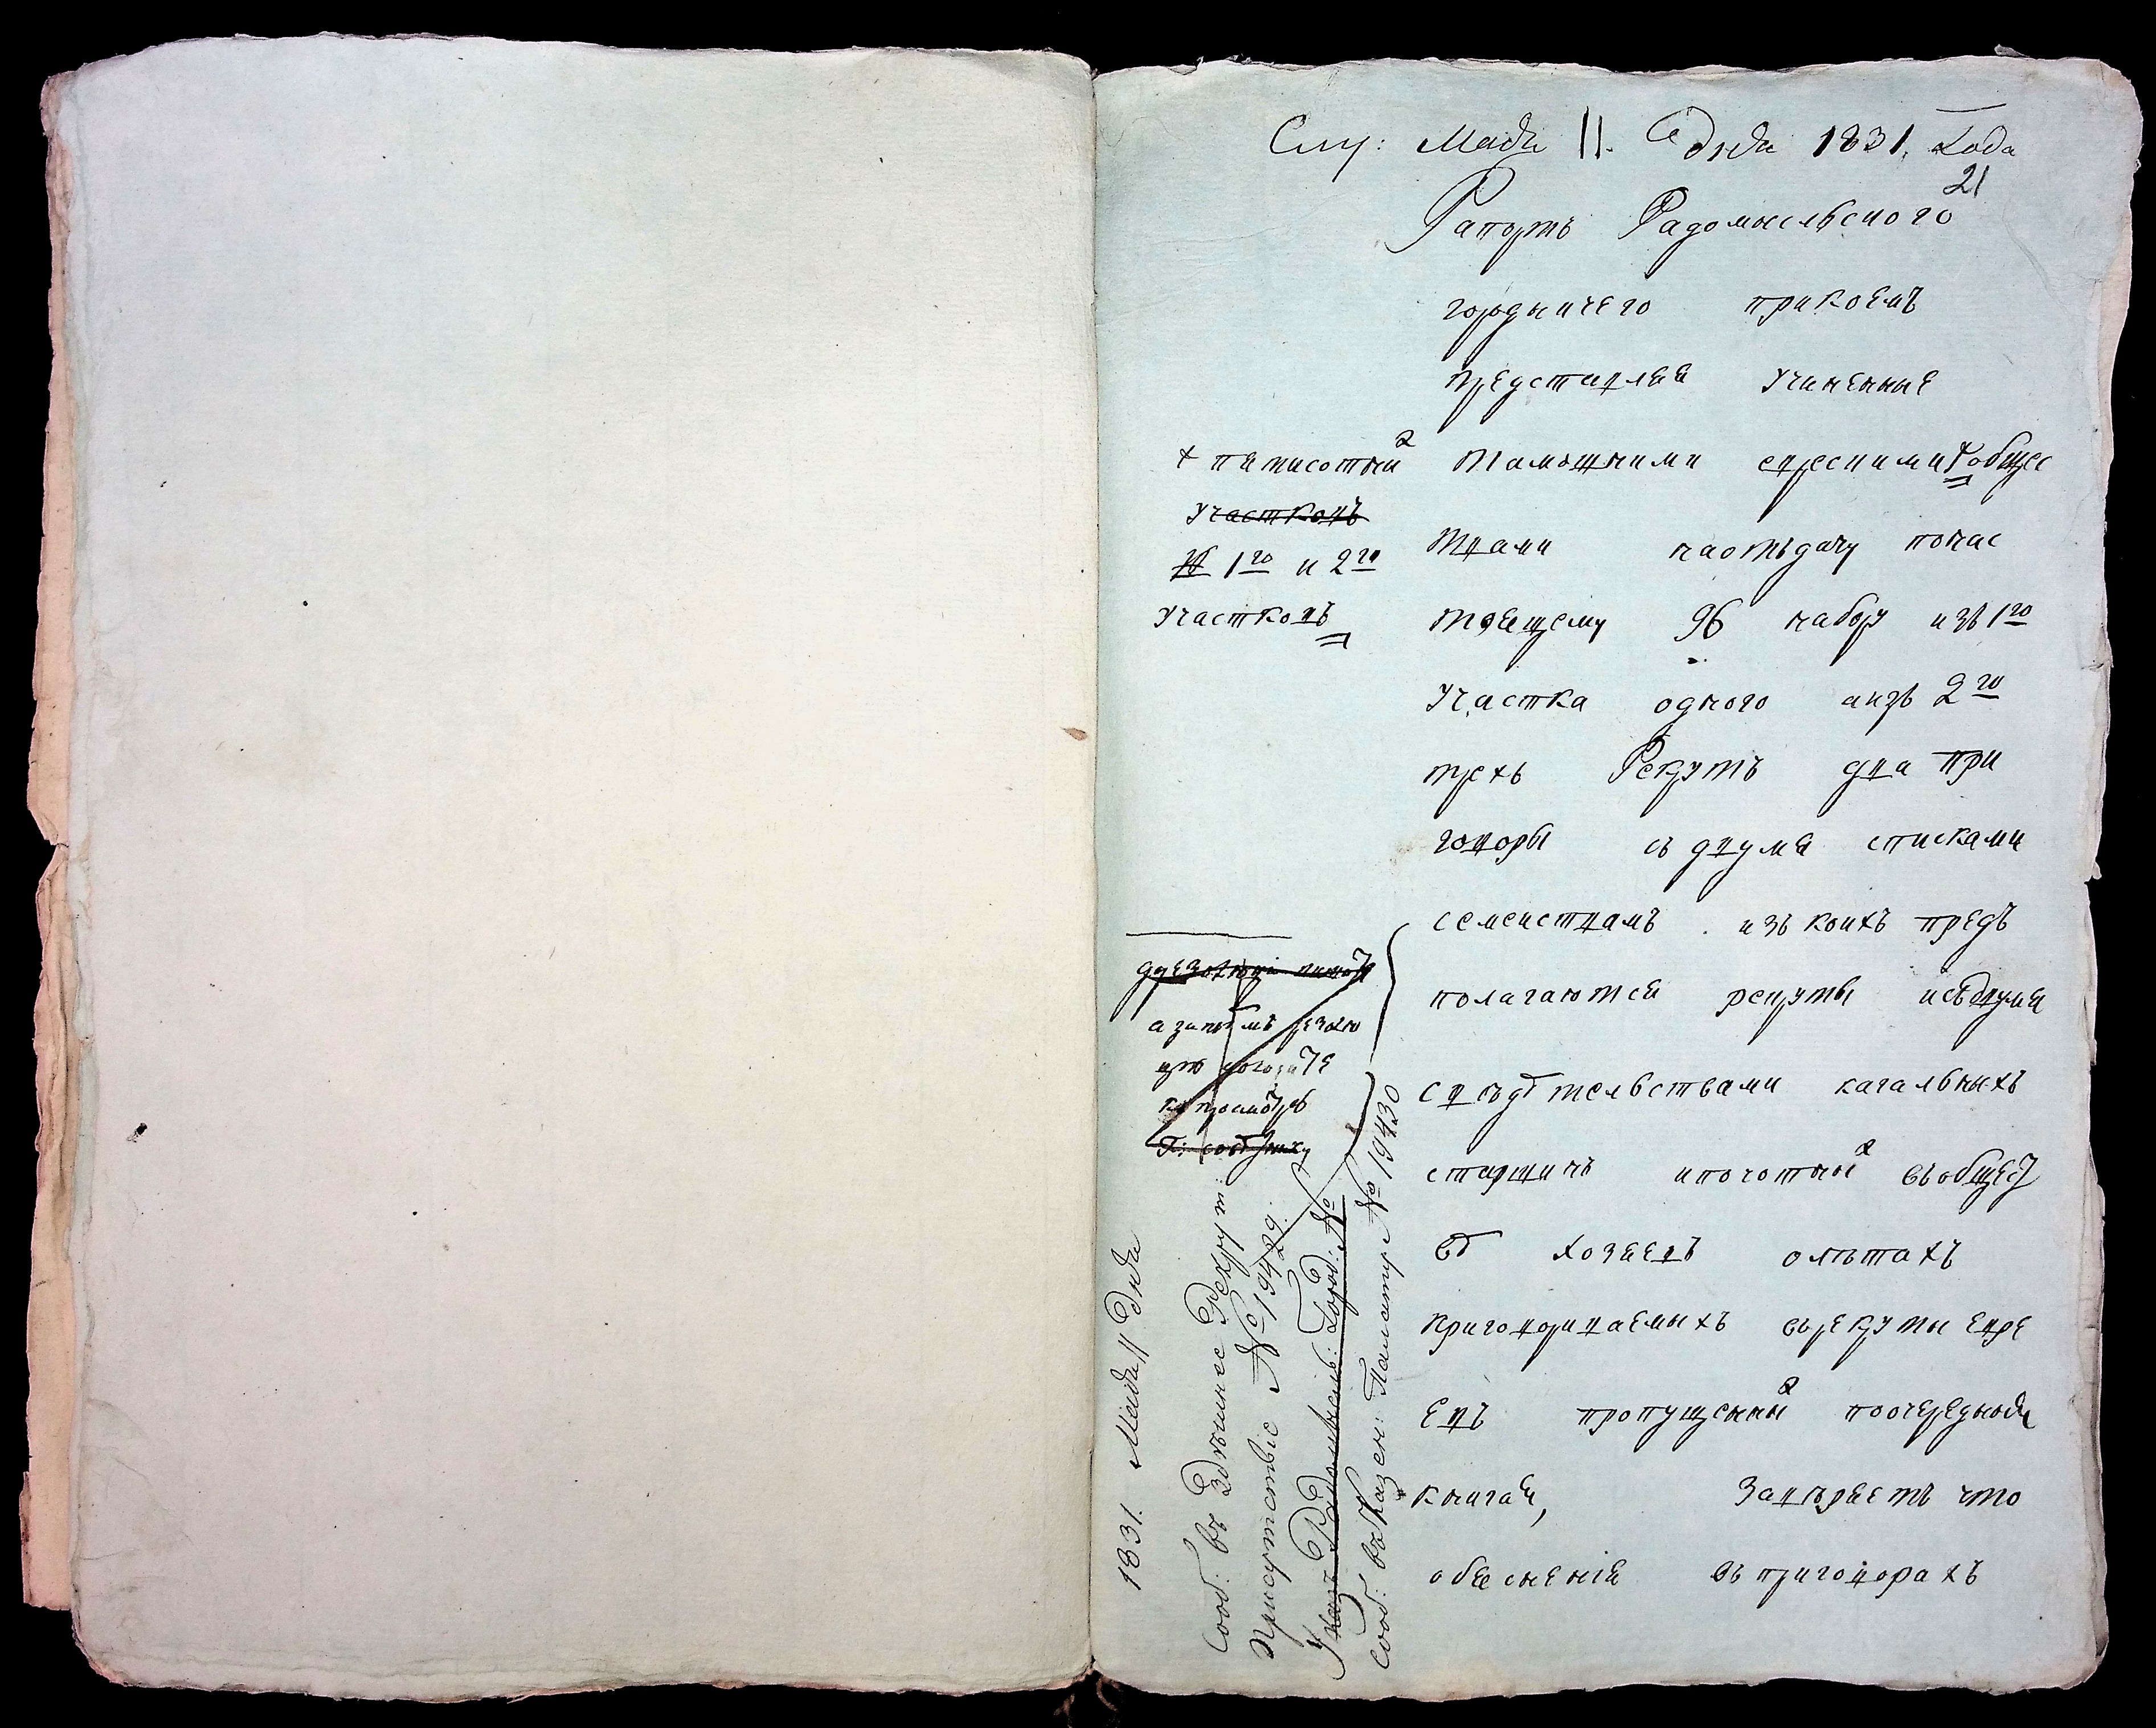 Слу: Маія 11. дня 1831. Года
21
Рапортъ Радомысльского
городничего при коемъ
представляя учиненные
тамошними еврескими + общес
твами наотъдачу понас
тоящему 96 набору изъ 1го
участка одного аизъ 2го
трехъ Рекрутъ два при
говоры съ двумя списками
семействамъ изъ коихъ предъ
полагаются рекруты исъдвумя
свидѣтельствами кагальныхъ
старшинъ ипочотныхъ въобщест
вѣ хозяевъ олѣтахъ
приговориваемыхъ върекруты евре
евъ пропущеныхъ поочередной
книгаи, Заверяетъ что
обясненія въ приговорахъ
+ пятисотных
участковъ
1го и 2го
участковъ
а затѣмъ резолю
1831. Маія 11 дня
Сооб: въ Здѣшнее Рекрут:
Присутствіе № 19429.
Указъ Радомысль: Город: №
Сооб: въ Казен: Палату № 19430